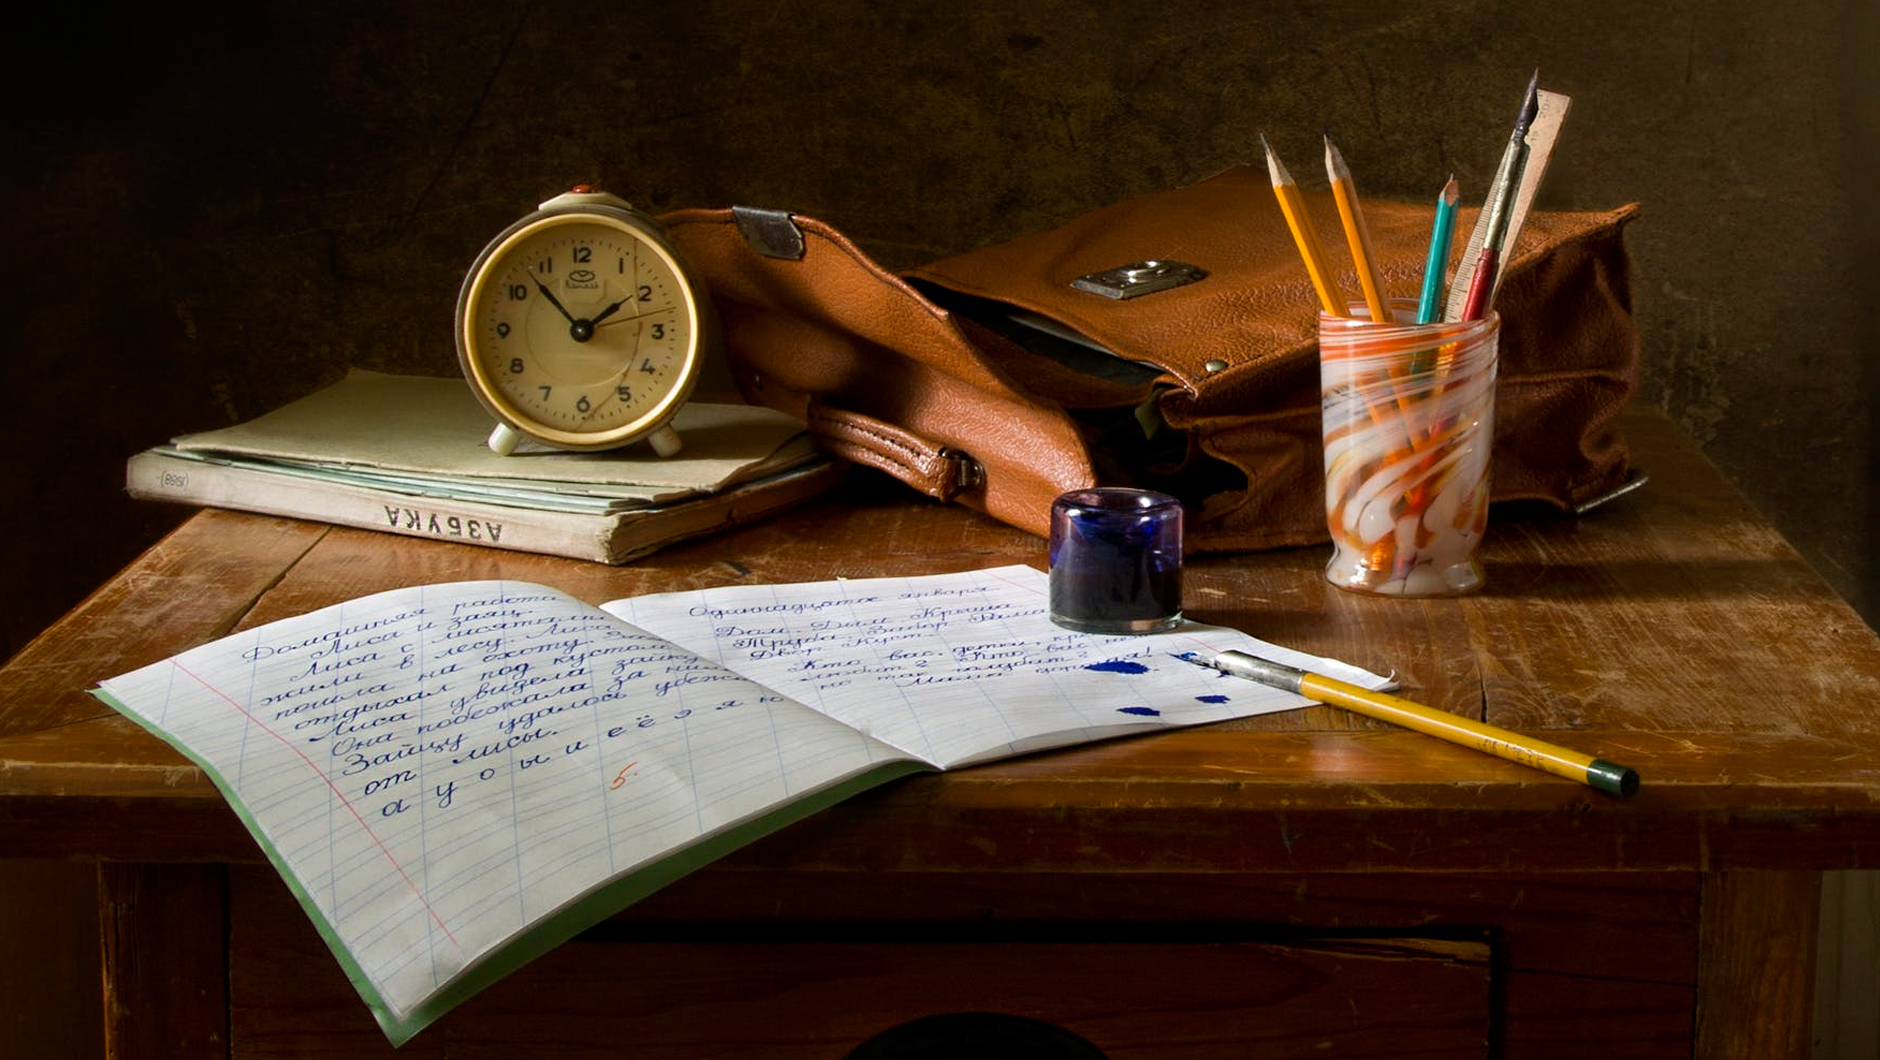 12
11
1
10
2
9
3
8
4
7
5
6
(1988)
АЗБУКА
Домашняя работа
Лиса и заяц.
Лиса с лисятами
жили в лесу. Лиса
пошла на охоту. Заяц
отдыхал под кустом.
Лиса увидела зайку.
Она побежала за ним.
Зайцу удалось убежать
от лисы.
а у о ы и е ё э я ю
5.
Одиннадцатое января
Дом. Дым. Крыша
Труба. Забор. Рама
Двор. Куст.
Кто вас, детки,
любит? Кто вас
голубит?
но так Мама